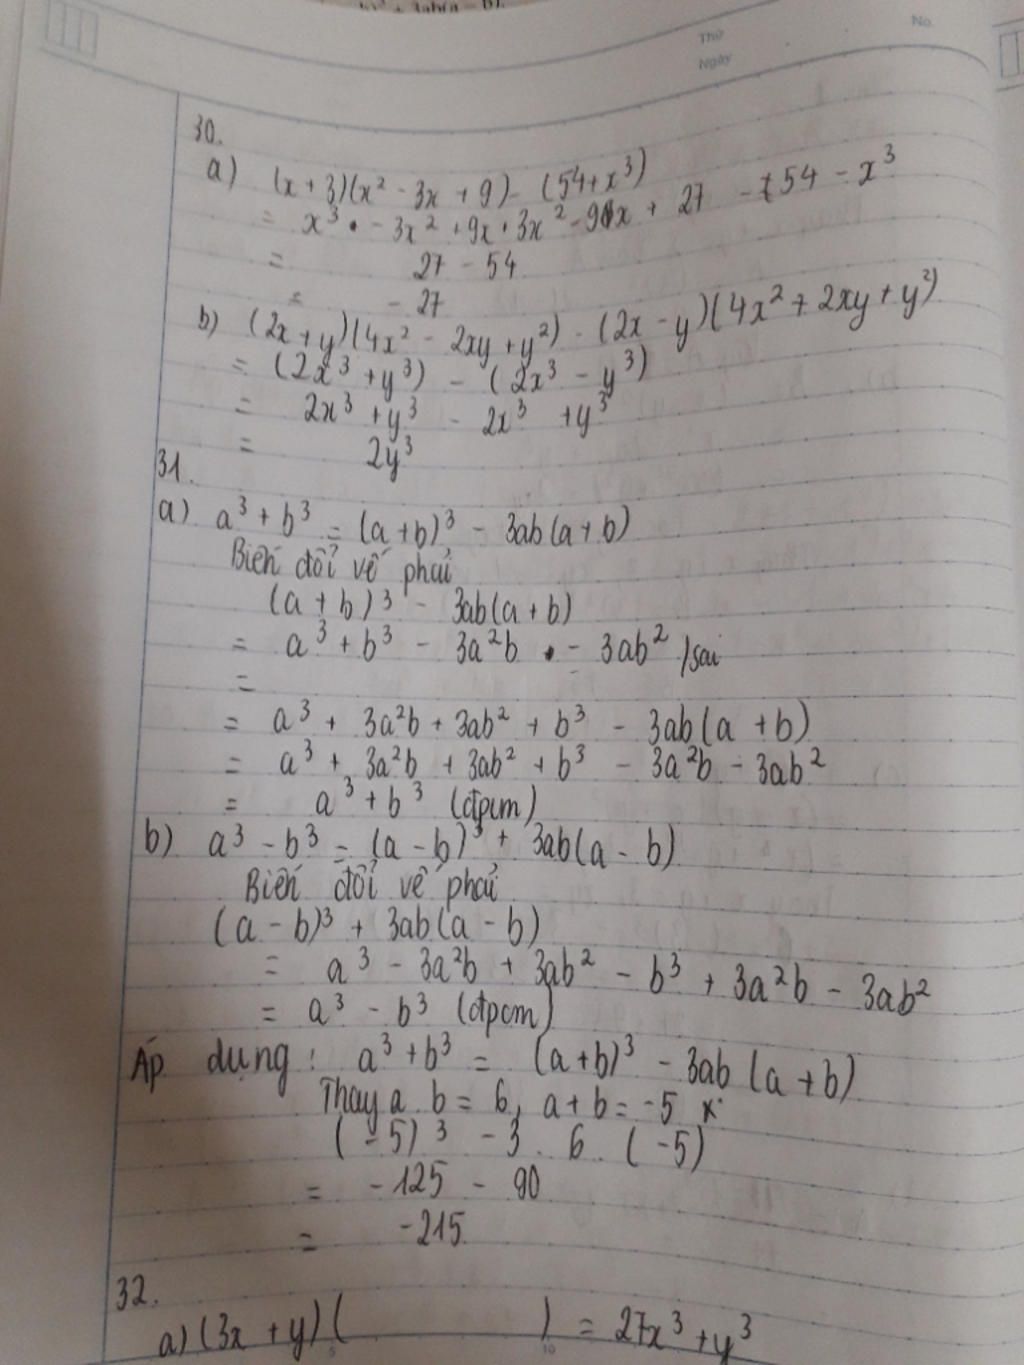 Thứ
No.
Ngày
30.
a) (x + 3)(x² - 3x + 9) - (54 + x³)
= x³ - 3x² + 9x + 3x² - 9x + 27 - 54 - x³
= 27 - 54
= - 27
b) (2x + y)(4x² - 2xy + y²) - (2x - y)(4x² + 2xy + y²)
= (2x³ + y³) - (2x³ - y³)
= 2x³ + y³ - 2x³ + y³
= 2y³
31.
a) a³ + b³ = (a + b)³ - 3ab(a + b)
Biến đổi vế phải
(a + b)³ - 3ab(a + b)
= a³ + b³ - 3a²b - 3ab² /sai
=
= a³ + 3a²b + 3ab² + b³ - 3ab(a + b)
= a³ + 3a²b + 3ab² + b³ - 3a²b - 3ab²
= a³ + b³ (đpcm)
b) a³ - b³ = (a - b)³ + 3ab(a - b)
Biến đổi vế phải
(a - b)³ + 3ab(a - b)
= a³ - 3a²b + 3ab² - b³ + 3a²b - 3ab²
= a³ - b³ (đpcm)
Áp dụng: a³ + b³ = (a + b)³ - 3ab (a + b)
Thay a . b = 6, a + b = -5
(-5)³ - 3 . 6 . (-5)
= -125 - 90
= -215
32.
a) (3x + y)( ) = 27x³ + y³
5 10